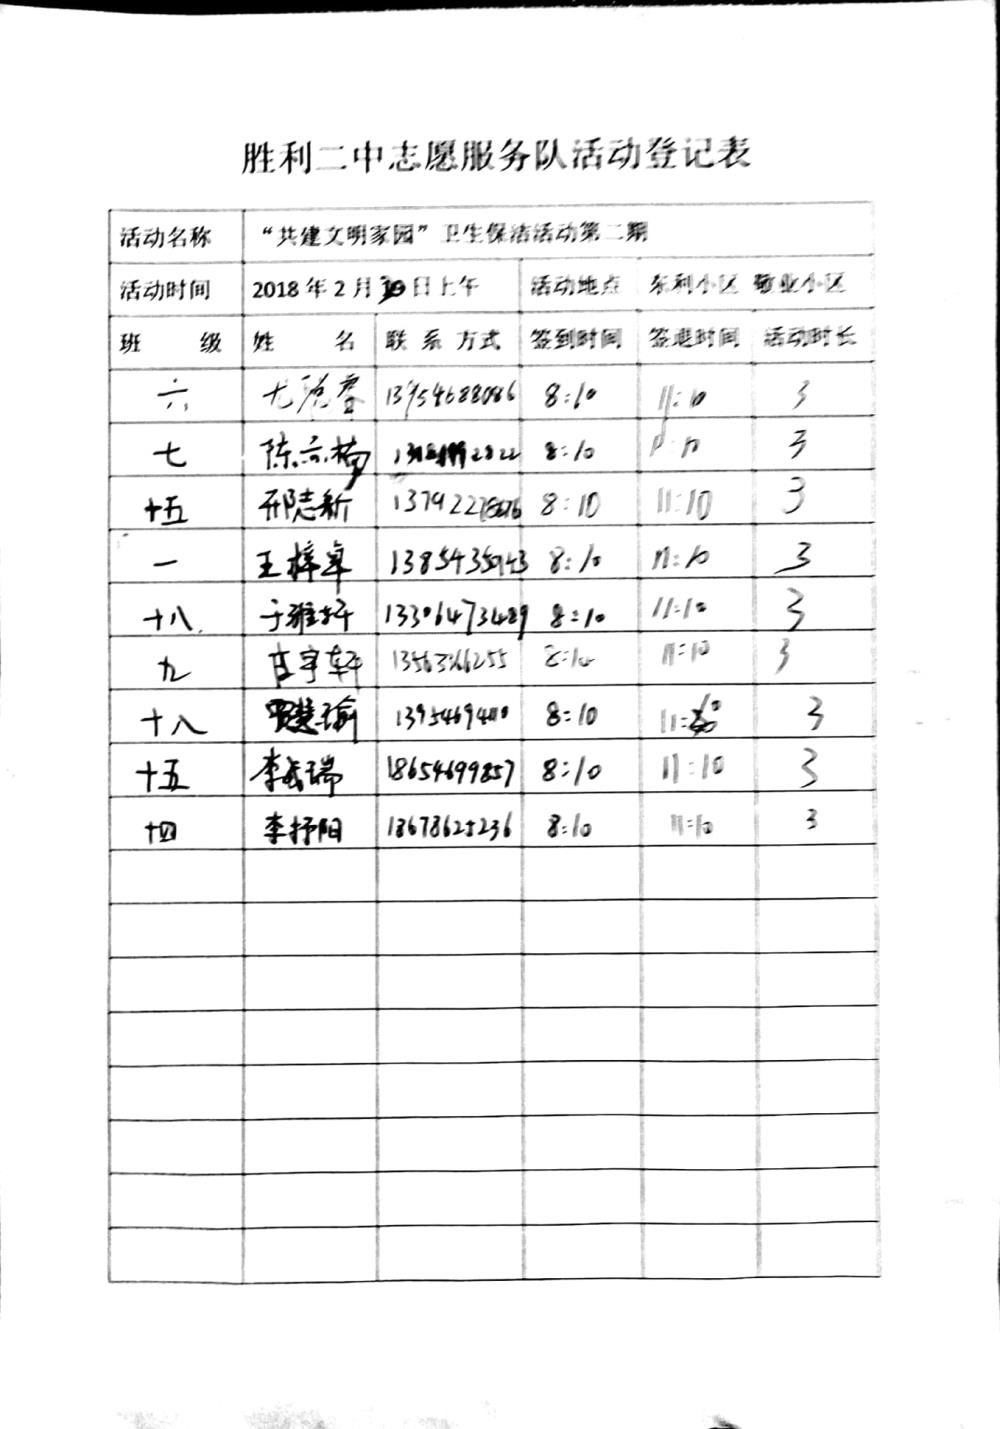 胜利二中志愿服务队活动登记表
活动名称 “共建文明家园”卫生保洁活动第二期
活动时间 2018年2月 日上午 活动地点 东利小区 敬业小区
班 级 姓 名 联系方式 签到时间 签退时间 活动时长
六 13954688086 8:10 11:10 3
七 陈 楠 8:10 3
十五 邢志新 8:10 11:10 3
一 王梓卓 8:10 11:10 3
十八 于雅轩 13306473489 8:10 11:10 3
九 宇轩 8:10 11:10 3
十八 瑜 8:10 3
十五 李 瑞 18654699857 8:10 11:10 3
十四 李抒阳 13678625236 8:10 11:10 3